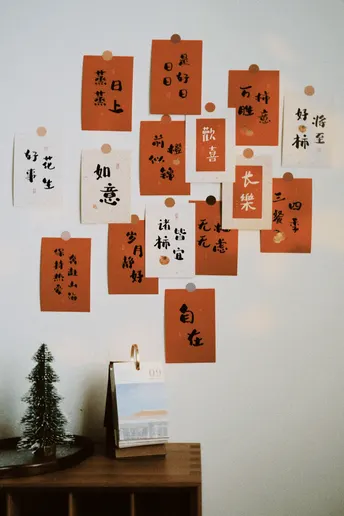 日日
是好日
蒸蒸
日上
万柿
胜意
好柿
将至
歡喜
前橙
似锦
好事
花生
如意
長樂
三餐
四季
诸柿
皆宜
无
无虑
岁月
静好
保持热爱
奔赴山海
自在
09